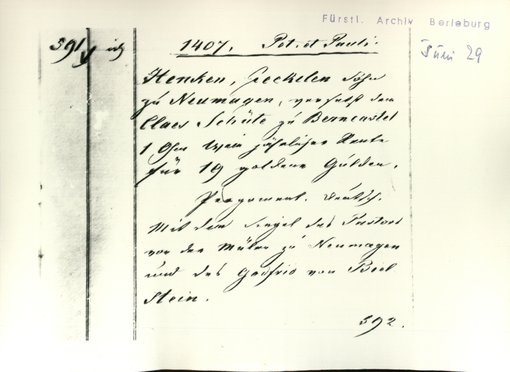 Fürstl. Archiv Berleburg
Juni 29
591
1407. Pet. et Pauli.
Henken, Heckelen Sohn
zu Neumagen, verkauft dem
Claes Schüte zu Berncastel
1 Ohm Wein jährlicher Rente
für 19 goldene Gulden.
Pergament. Deutsch.
Mit dem Siegel des Pastors
von der Mülen zu Neumagen
und des Godfrid von Beil
stein.
592.